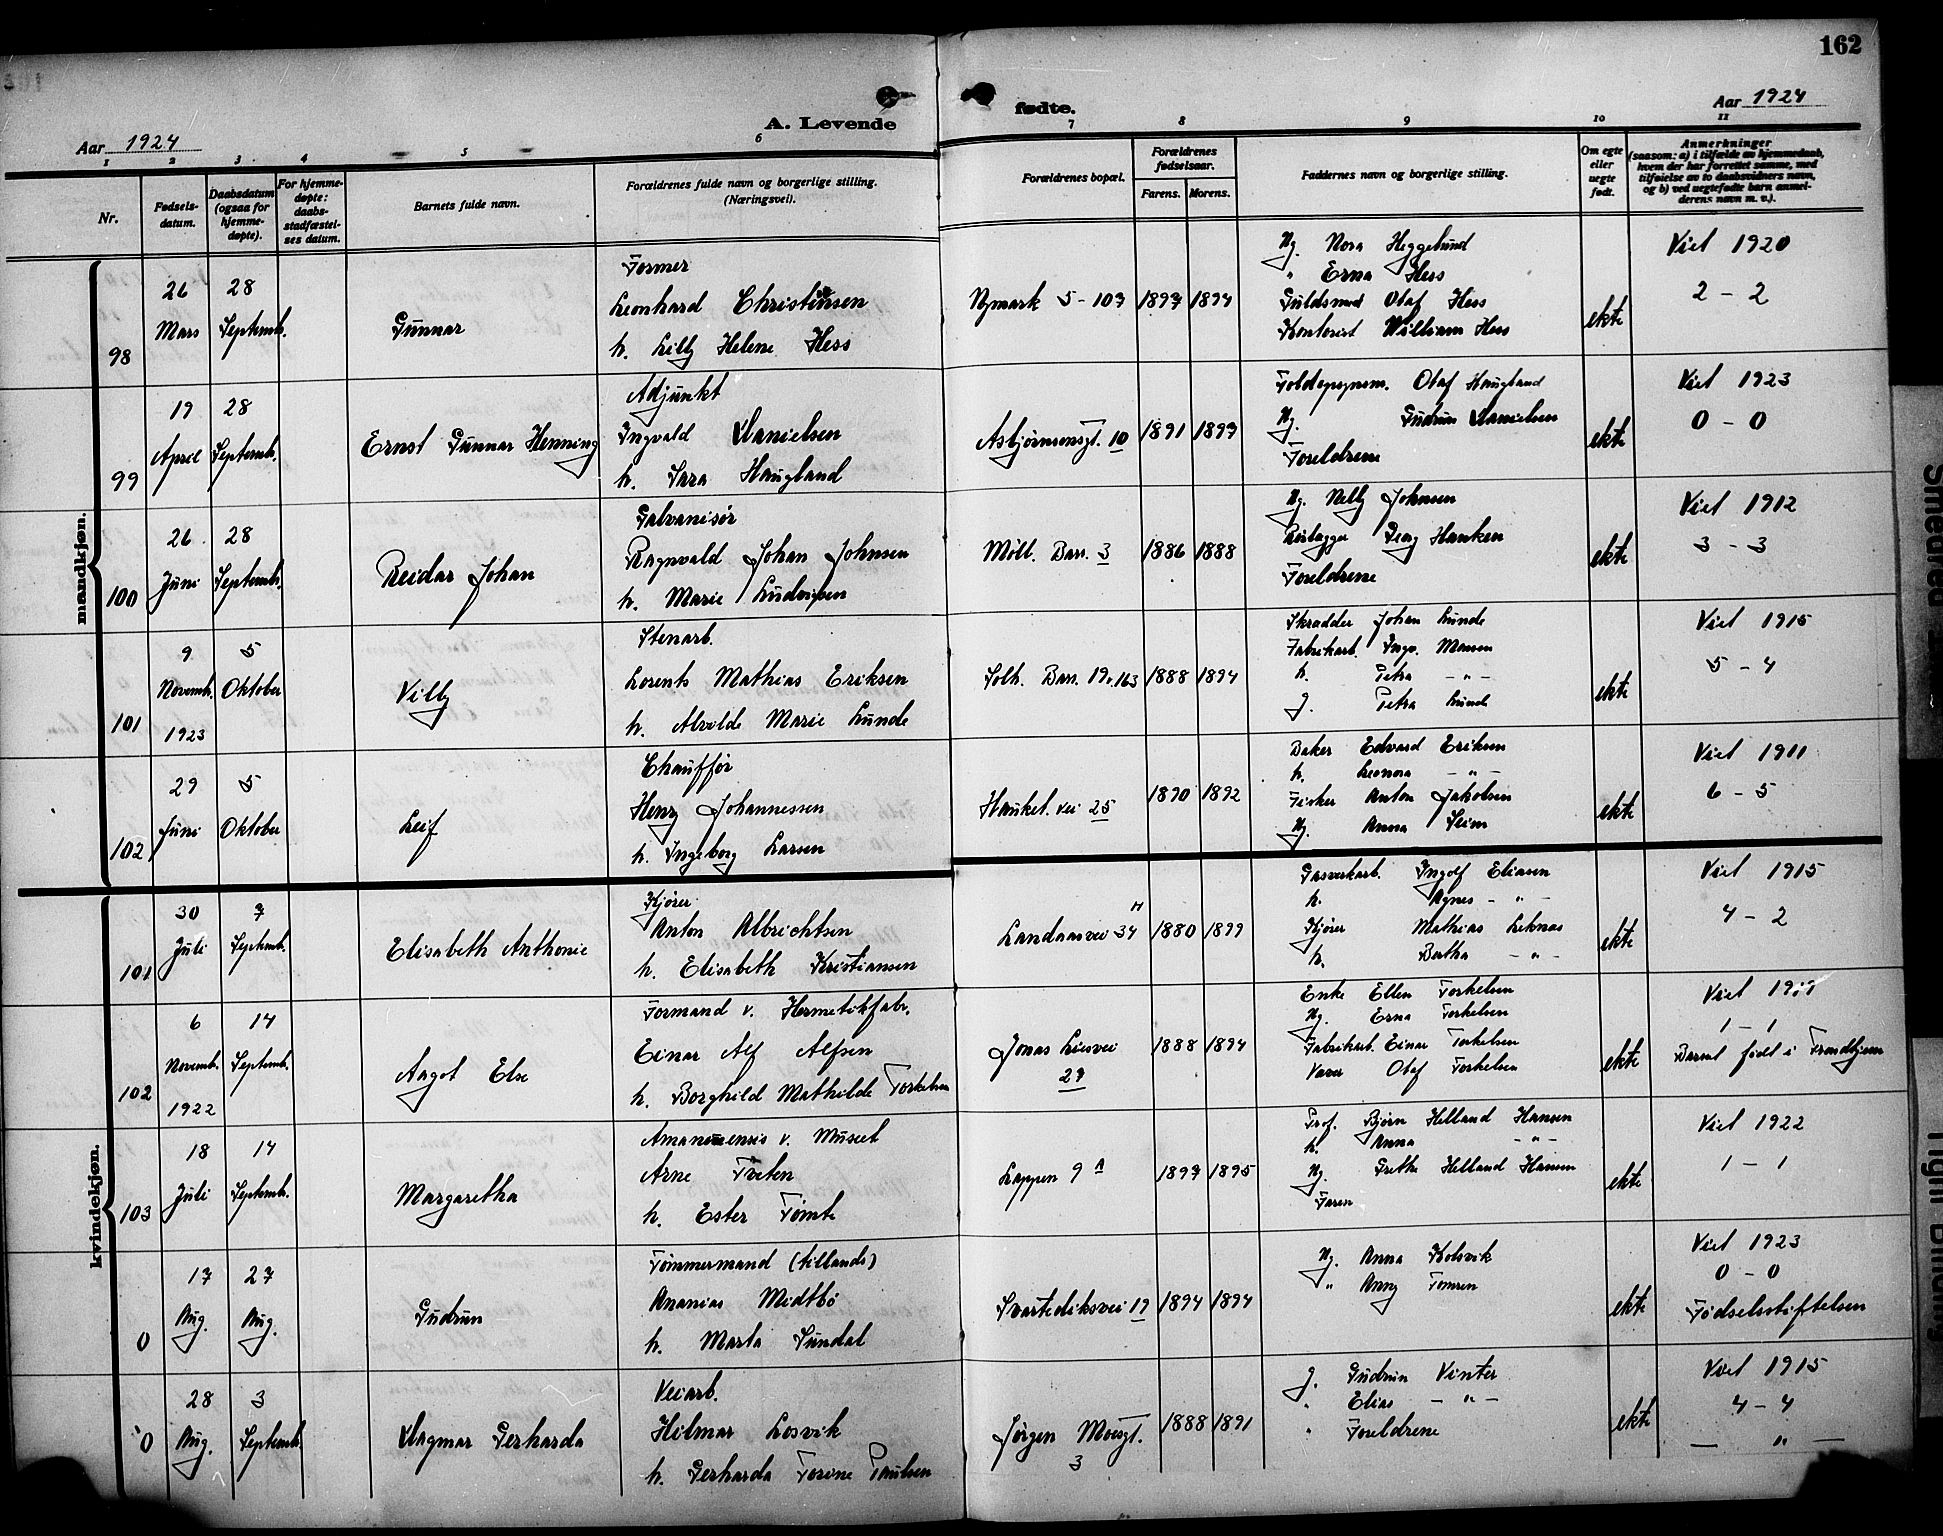 162
Aar 1924
A. Levende
fødte.
Aar 1924
1 2 3 4 5 6 7 8 9 10 11
Nr.
Fødsels-
datum.
Daabsdatum
(ogsaa for
hjemme-
døpte).
For hjemme-
døpte:
daabs-
stadfæstel-
ses datum.
Barnets fulde navn.
Forældrenes fulde navn og borgerlige stilling.
(Næringsvei).
Forældrenes bopæl.
Forældrenes
fødselsaar.
Farens. Morens.
Faddernes navn og borgerlige stilling.
Om egte
eller
uegte
født.
Anmerkninger
(saasom: a) i tilfælde av hjemmedaab,
hvem der har forrettet samme, med
tilføielse av to daabsvidners navn,
og b) ved uegtefødte barn anmel-
derens navn m. v.).
mandkjøn.
98
26 Mars
28 Septemb.
Gunnar
Former
Leonhard Christensen
h. Lilly Helene Hess
Nymark 5-103
1897 1894
Ug. Nora Heggelund
" Erna Hess
Guldsmed Olaf Hess
Kontorist William Hess
ekte
Viet 1920
2 - 2
99
19 April
28 Septemb.
Ernst Gunnar Henning
Adjunkt
Ingvald Danielsen
h. Sara Haugland
Asbjørnsensgt. 10
1891 1897
Toldopsynsm. Olaf Haugland
Ug. Gudrun Danielsen
Foreldrene
ekte
Viet 1923
0 - 0
100
26 Juni
28 Septemb.
Reidar Johan
Galvanisør
Ragnvald Johan Johnsen
h. Marie Ludvigsen
Møll. Barr. 3
1886 1888
Ug. Nelly Johnsen
Georg Hanken
Foreldrene
ekte
Viet 1912
3 - 3
101
9 Novemb. 1923
5 Oktober
Villy
Stenarb.
Lorents Mathias Eriksen
h. Alvilde Marie Lunde
Solh. Barr. 19. 163
1888 1894
Skrædder Johan Lunde
Fabrikarb. Ingv. Monsen
h. Petra - " -
g. Petra Lunde
ekte
Viet 1915
5 - 4
102
29 Juni
5 Oktober
Leif
Chauffør
Henry Johannessen
h. Ingeborg Larsen
Hauket. vei 25
1890 1892
Baker Edvard Eriksen
h. Leonora - " -
Fisker Anton Jakobsen
Ug. Anna Seim
ekte
Viet 1911
6 - 5
kvindekjøn.
101
30 Juli
7 Septemb.
Elisabeth Anthonie
Kjører
Anton Albrichtsen
h. Elisabeth Kristiansen
Landaasvei 34 H
1880 1899
Gasverkarb. Ingolf Eliasen
h. Agnes - " -
Kjører Mathias Leknes
h. Bertha - " -
ekte
Viet 1915
4 - 2
102
6 Novemb. 1922
14 Septemb.
Aagot Else
Formand v. Hermetikfabr.
Einar Alf Alfsen
h. Borghild Mathilde Torkelsen
Jonas Liesvei
29
1888 1894
Enke Ellen Torkelsen
Ug. Erna Torkelsen
Fabrikarb. Einar Torkelsen
Olaf Torkelsen
ekte
Viet 1919
1 - 1
Barnet født i Trondhjem
103
18 Juli
14 Septemb.
Margaretha
Amanuensis v. Museet
Arne Tveten
h. Ester Tømte
Lappen 9 A
1897 1895
Prof. Bjørn Helland Hansen
h. Anna - " -
Ug. Grethe Helland Hansen
Faren
ekte
Viet 1922
1 - 1
0
17 Aug.
27 Aug.
Gudrun
Tømmermand (tillands)
Ananias Midtbø
h. Marta Sundal
Svartediksvei 19
1894 1894
Ug. Anna Kolsvik
" Anny Tomren
ekte
Viet 1923
0 - 0
Fødselsstiftelsen
0
28 Aug.
3 Septemb.
Dagmar Gerharda
Veiarb.
Hilmar Losvik
h. Gerharda Torine Paulsen
Jørgen Moesgt.
3
1888 1891
g. Gudrun Vinter
" Elias - " -
" Foreldrene
ekte
Viet 1915
4 - 4
— " —